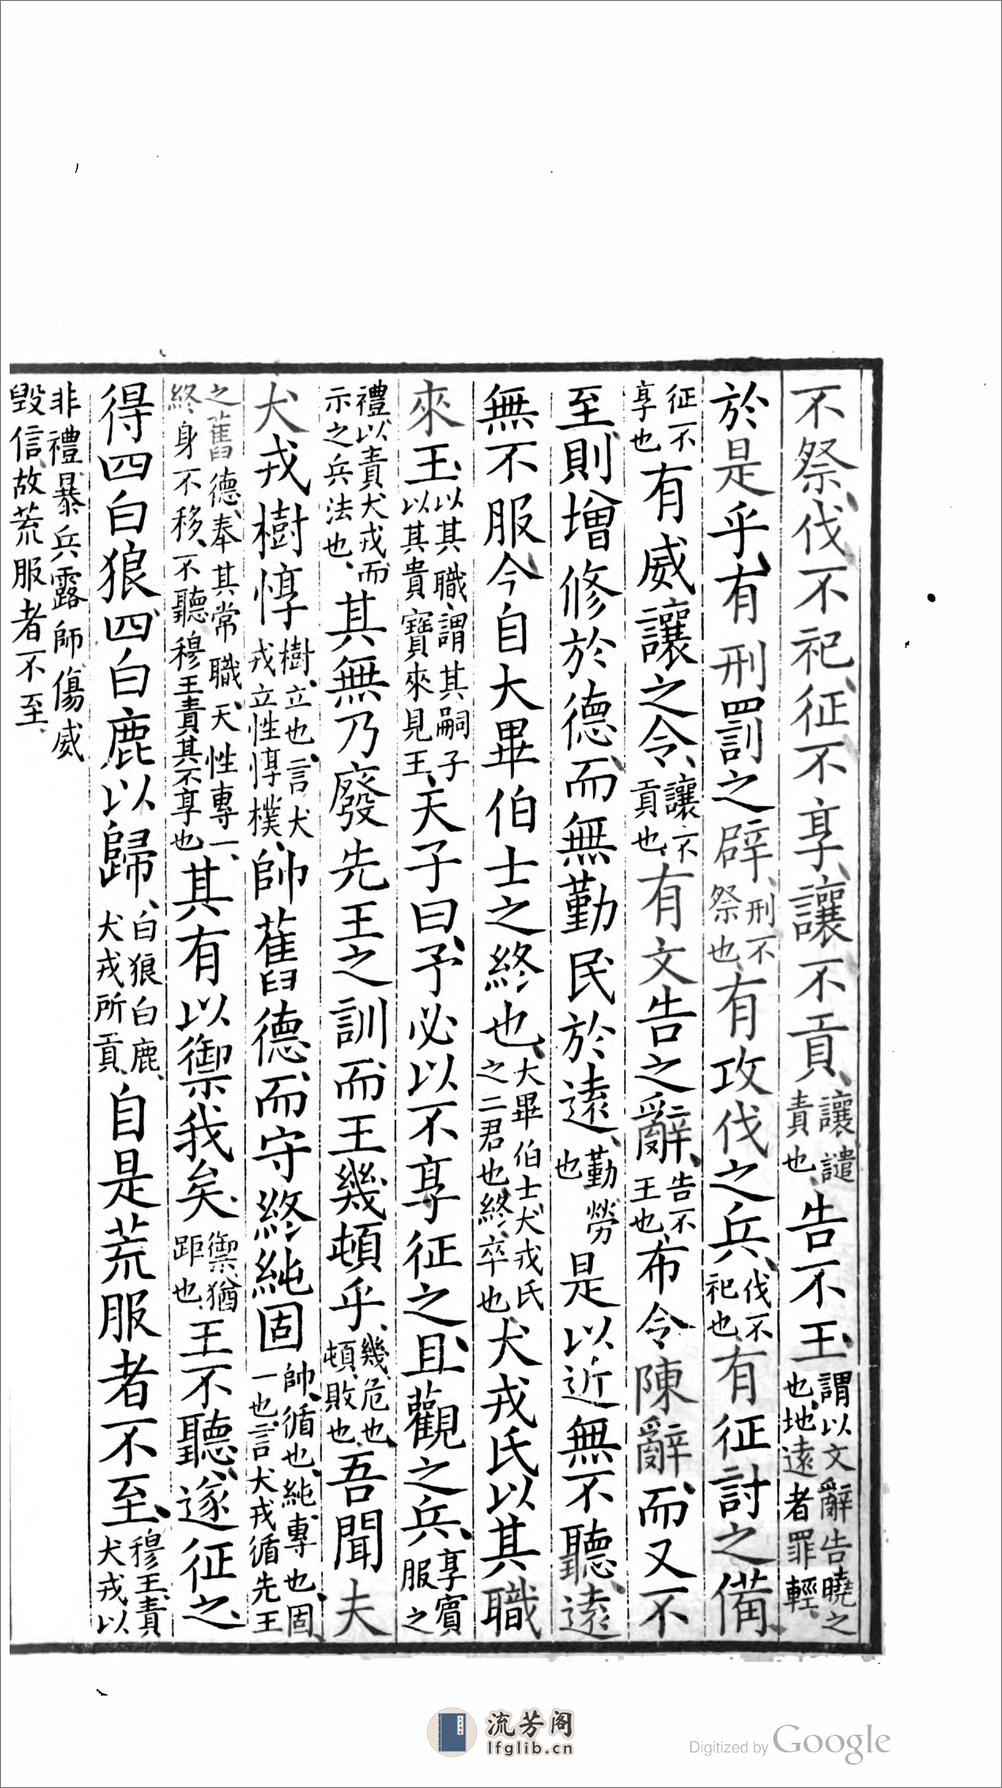 不祭、伐不祀、征不享、讓不貢、讓譴責也、告不王、謂以文辭告曉之也、地遠者罪輕、
於是乎、有刑罰之辟、刑不祭也、有攻伐之兵、伐不祀也、有征討之備、
征不享也、有威讓之令、讓不貢也、有文告之辭、告不王也、布令陳辭、而又不
至、則增修於德、而無勤民於遠、勤勞也、是以近無不聽、遠
無不服、今自大畢伯士之終也、大畢伯士、犬戎氏之二君也、終、卒也、犬戎氏以其職
來王、以其職、謂其嗣子以其貴寶來見王、天子曰、予必以不享征之、且觀之兵、享、賓服之
禮、以責犬戎、而示之兵法也、其無乃廢先王之訓、而王幾頓乎、幾、危也、頓、敗也、吾聞夫
犬戎樹惇、樹、立也、言犬戎立性惇樸、帥舊德、而守終純固、帥、循也、純、專也、固、一也、言犬戎循先王
之舊德、奉其常職、天性專一、終身不移、不聽穆王責其不享也、其有以禦我矣、禦猶距也、王不聽、遂征之、
得四白狼、四白鹿以歸、白狼白鹿、犬戎所貢、自是荒服者不至、穆王責犬戎以
非禮、暴兵露師、傷威毀信、故荒服者不至、
流芳阁
lfglib.cn
Digitized by Google